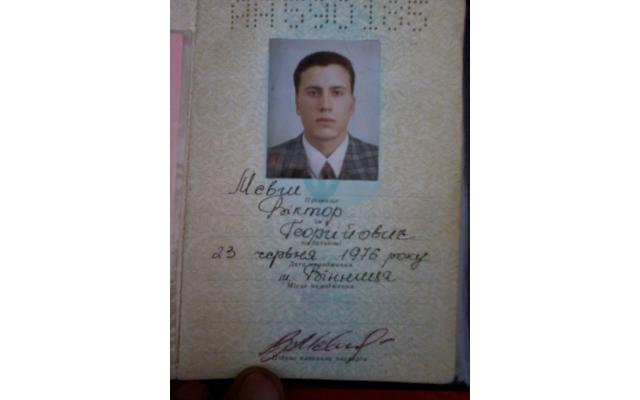 Мевш
Прізвище
Віктор
Ім'я
Георгійович
по батькові
23 червня 1976 року
Дата народження
м. Вінниця
Місце народження
Підпис власника паспорта